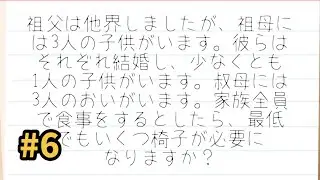 祖父は他界しましたが、祖母に
は3人の子供がいます。彼らは
それぞれ結婚し、少なくとも
1人の子供がいます。叔母には
3人のおいがいます。家族全員
で食事をするとしたら、最低
でもいくつ椅子が必要に
なりますか？
#6